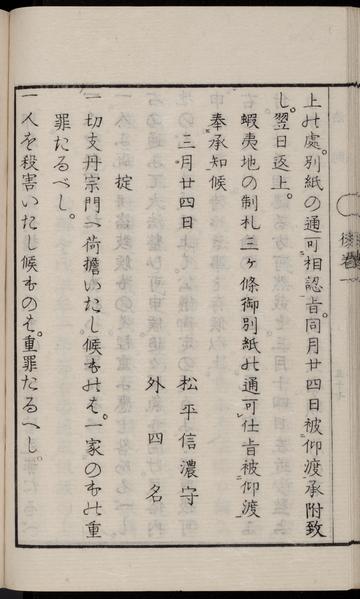 上候處。別紙の通可相認旨。同月廿四日被仰渡承附致
し。翌日返上。
蝦夷地の制札三ヶ條御別紙の通可仕旨被仰渡
奉承知候
三月廿四日 松平信濃守
外四名
掟
一切支丹宗門へ荷擔いたし候ものは。一家のもの重
罪たるべし。
一人を殺害いたし候ものは。重罪たるへし。
後卷一